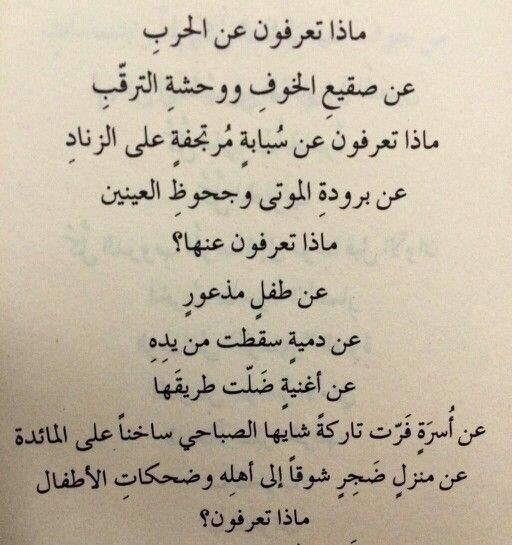 ماذا تعرفون عن الحربِ
عن صقيعِ الخوفِ ووحشةِ الترقّبِ
ماذا تعرفون عن سُبابةٍ مُرتجفةٍ على الزنادِ
عن برودةِ الموتى وجحوظِ العينين
ماذا تعرفون عنها؟
عن طفلٍ مذعورٍ
عن دميةٍ سقطت من يدِهِ
عن أغنيةٍ ضَلّت طريقَها
عن أُسرَةٍ فَرّت تاركةً شايها الصباحي ساخناً على المائدة
عن منزلٍ ضَجِرٍ شوقاً إلى أهلِه وضحكاتِ الأطفال
ماذا تعرفون؟